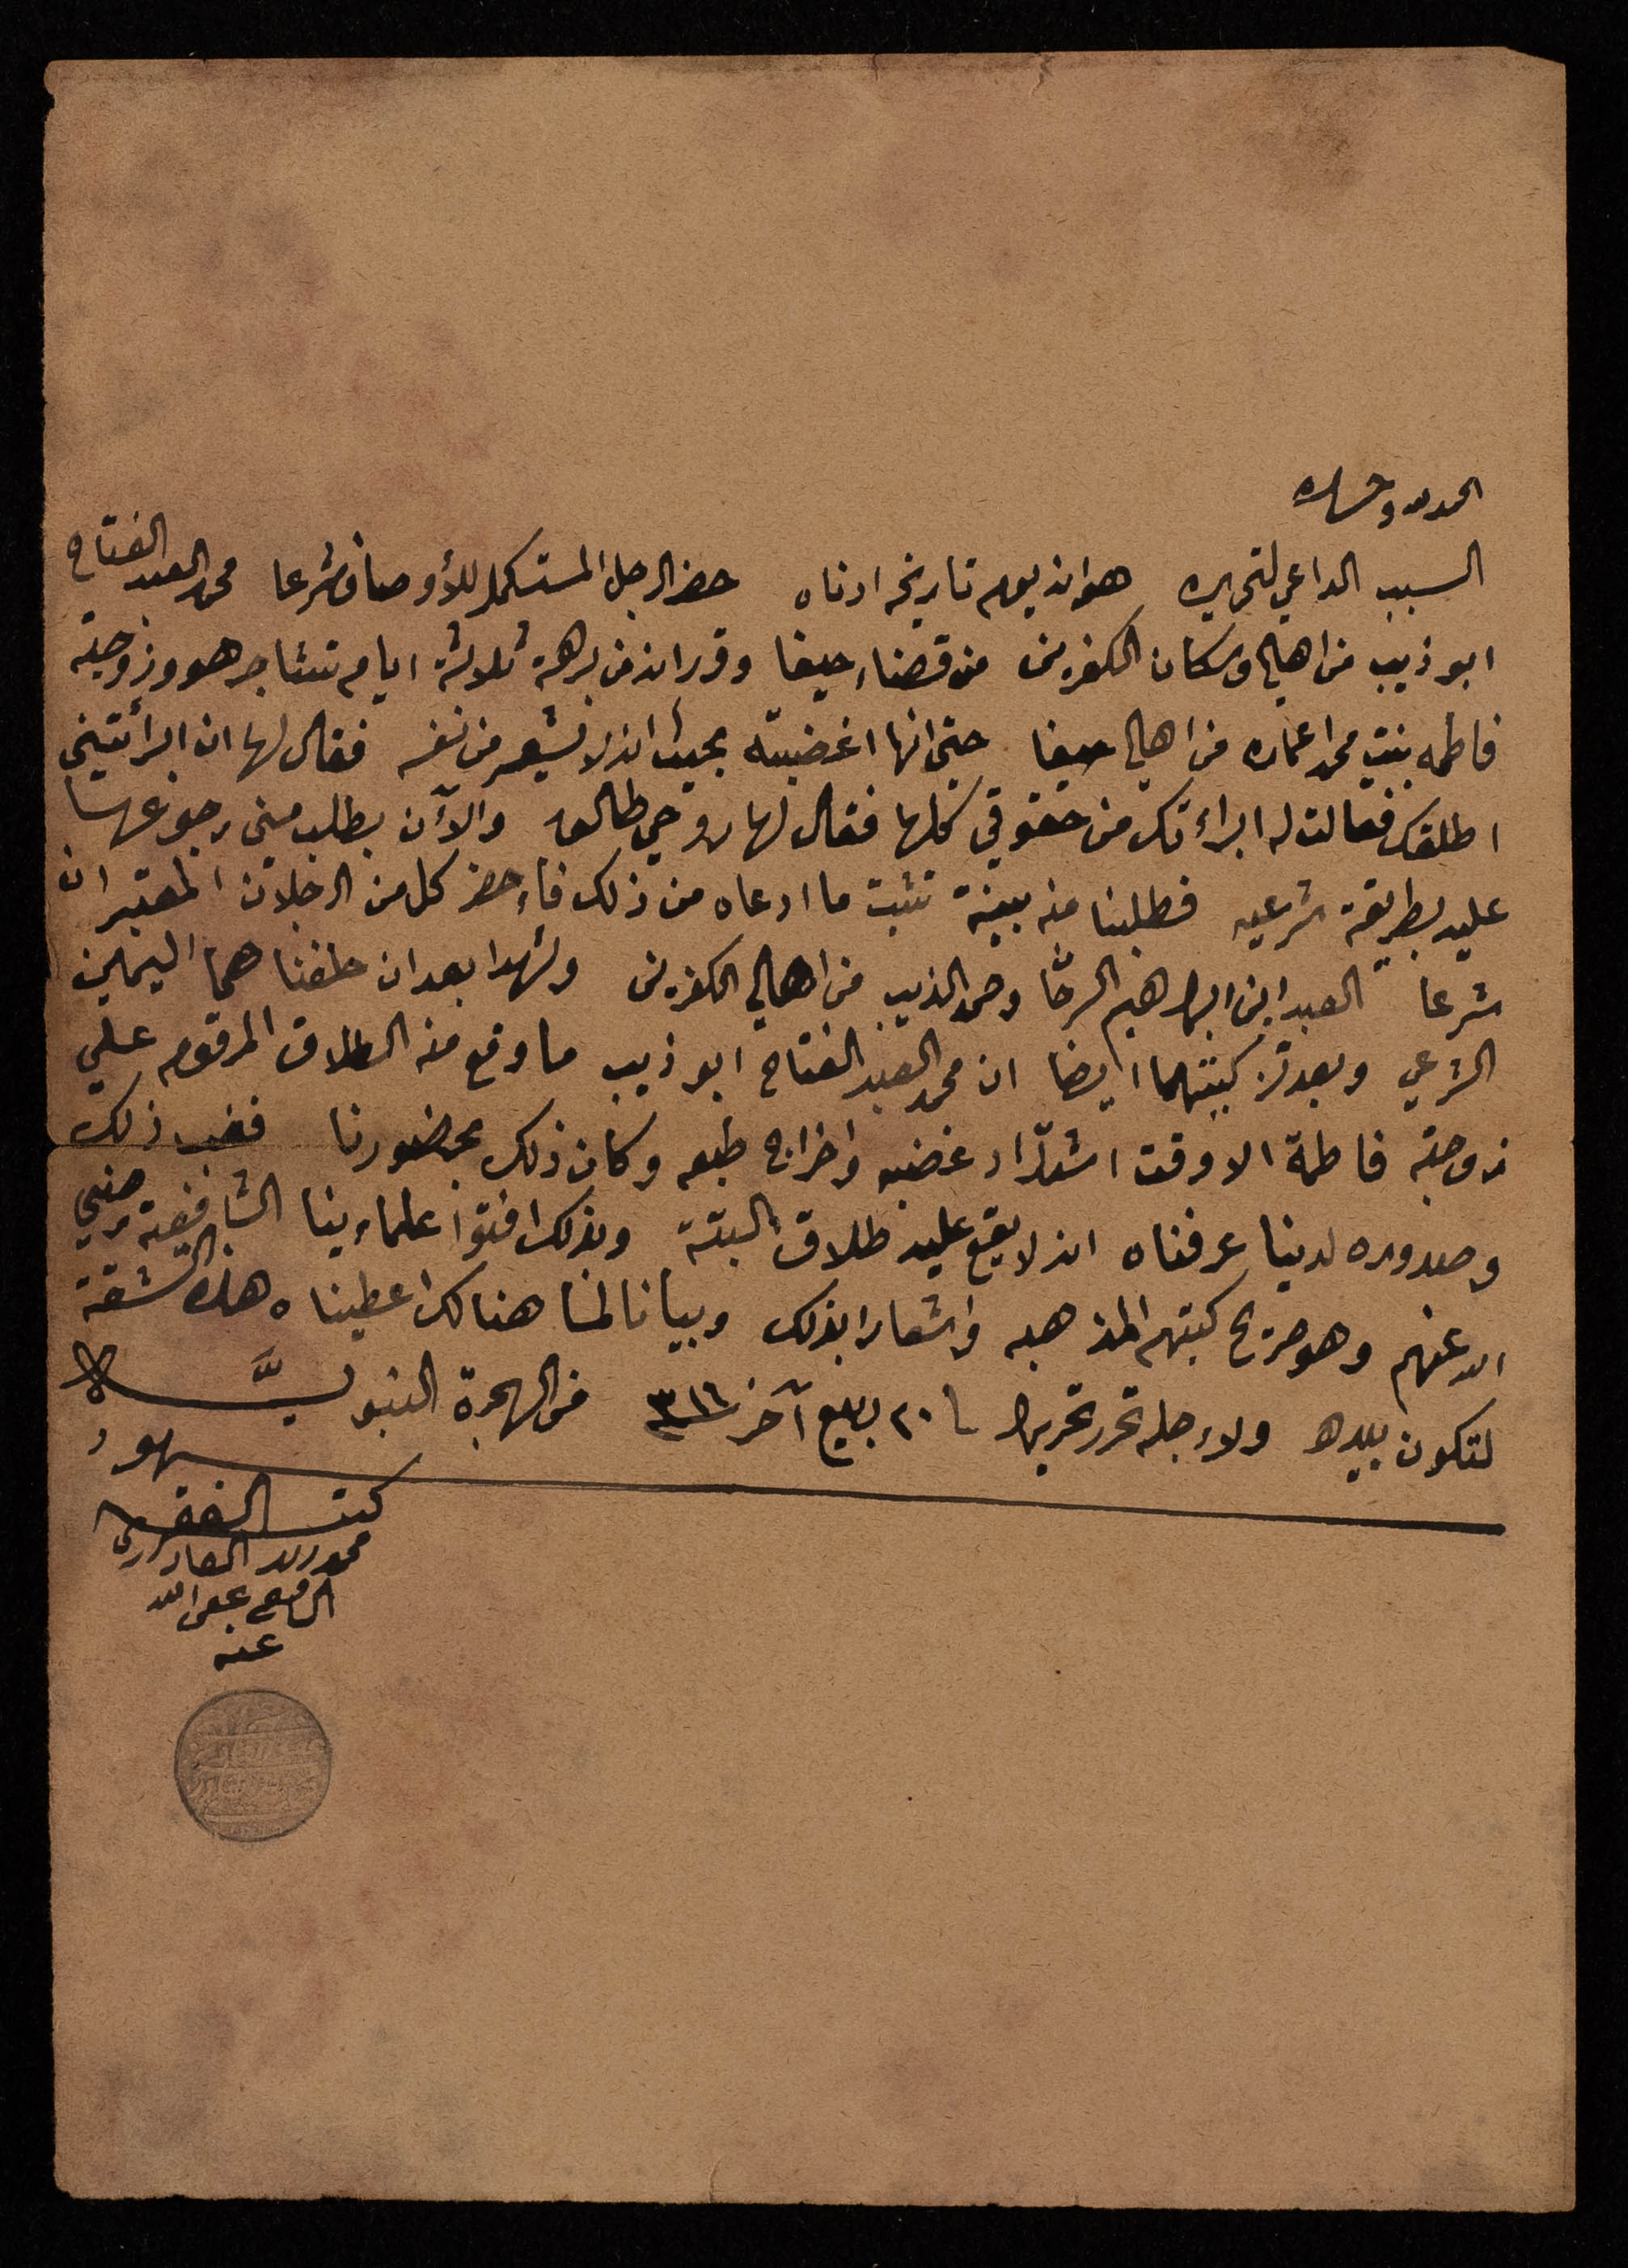 الحمد لله وحده
السبب الداعي لتحريره هو انه يوم تاريخه ادناه حضر الرجل المستكمل للأوصاف شرعا محمد العبد الفتاح
ابو ذيب من اهالي وسكان الكفرين من قضاء حيفا وقرر انه من برهة ثلاثة ايام تشاجر هو وزوجته
فاطمه بنت محمد اعماره من اهالي حيفا حتى انها اغضبته بحيث انه لا يشعر من نفسه فقال لها ان ابرأتيني
اطلقك فقالت له ابراءتك من حقوقي كلها فقال لها روحي طالق والآن يطلب مني رجوعها
عليه بطريقة شرعيه فطلبنا منه بينة تثبت ما ادعاه من ذلك فاءحضر كل من الرجلان المعتبران
شرعا العبد ابن ابراهيم الرحا وحمد الذيب من اهالي الكفرين وشهدا بعد ان حلفناهما اليمين
الشرعي وبعد تزكيتهما ايضا ان محمد العبد الفتاح ابو ذيب ما وقع منه الطلاق المرقوم علي
زوجته فاطمة الا وقت اشتداد غضبه واخراج طبعه وكان ذلك بحضورنا فغب ذلك
وصدوره لدينا عرفناه انه لا يقع عليه طلاق البتة وبذلك افتوا علماءينا الشافعية رضي
الله عنهم وهو صريح كتبهم المذهبه واشعارا بذلك وبيانا لما هنالك اعطيناه هذه الشقة
لتكون بيده ولاءجله تحرر تحريرا في ٢٠ ربيع آخر سنة ٣١٦ من الهجرة النبويَّه
شهود
كتبه الفقير
محمود القادري
عفى الله
عنه